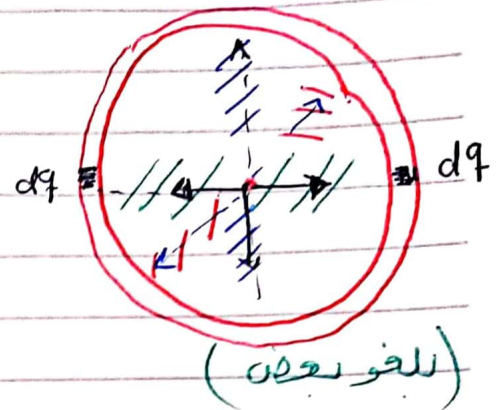 dq
dq
(يلغو بعض)